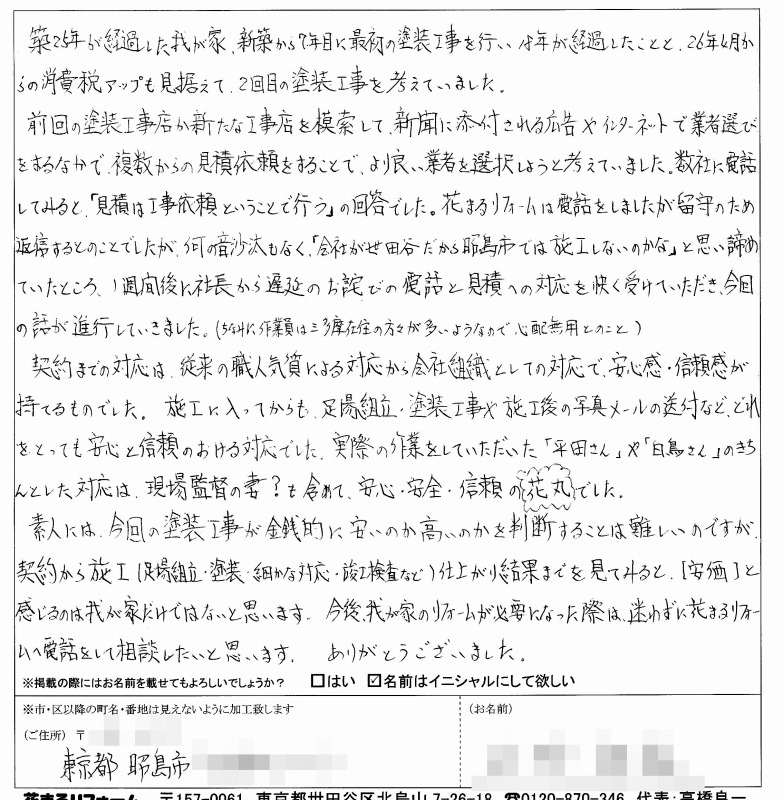 築25年が経過した我が家、新築から7年目に最初の塗装工事を行い、18年が経過したことと、26年4月か
らの消費税アップも見据えて、2回目の塗装工事を考えていました。
前回の塗装工事店か新たな工事店を模索して、新聞に添付される広告やインターネットで業者選び
をするなかで、複数からの見積依頼をすることで、より良い業者を選択しようと考えていました。数社に電話
してみると、「見積は工事依頼ということで行う」の回答でした。花まるリフォームは電話をしましたが留守のため
返信するとのことでしたが、何の音沙汰もなく、「会社が世田谷だから昭島市では施工しないのかな」と思い諦め
ていたところ、1週間後に社長から遅延のお詫での電話と見積への対応を快く受けていただき、今回
の話が進行していきました。(ちなみに作業員は三多摩在住の方々が多いようなので心配無用とのこと)
契約までの対応は、従来の職人気質による対応から会社組織としての対応で、安心感・信頼感が
持てるものでした。 施工に入ってからも、足場組立・塗装工事や施工後の写真メールの送付など、どれ
をとっても安心と信頼のおける対応でした。実際の作業をしていただいた「平田さん」や「白鳥さん」のきち
んとした対応は、現場監督の妻?も含めて、安心・安全・信頼の花丸でした。
素人には、今回の塗装工事が金銭的に安いのか高いのかを判断することは難しいのですが、
契約から施工(足場組立・塗装・細かな対応・竣工検査など)仕上がり結果までを見てみると、[安価]と
感じるのは我が家だけではないと思います。 今後、我が家のリフォームが必要になった際は、迷わずに花まるリフォー
ムへ電話をして相談したいと思います。 ありがとうございました。
※掲載の際にはお名前を載せてもよろしいでしょうか? □はい ☑名前はイニシャルにして欲しい
※市・区以降の町名・番地は見えないように加工致します
(お名前)
(ご住所) 〒
東京都 昭島市
花まるリフォーム 〒157-0061 東京都世田谷区北烏山7-26-18 ☎0120-870-346 代表:高橋良一